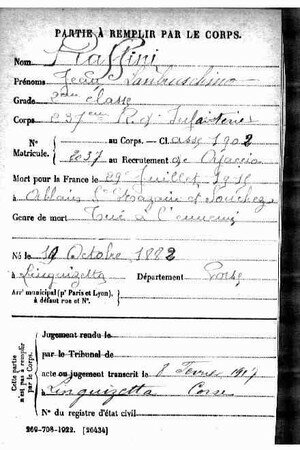 PARTIE À REMPLIR PAR LE CORPS.
Nom
Prénoms Jean
Grade 2ème classe
Corps 237em Rt d'Infanterie
N° au Corps. — Classe 1902
Matricule. 2037 au Recrutement de Ajaccio
Mort pour la France le 29 Juillet 1915
à Ablain St Nazaire et Souchez
Genre de mort Tué à l'ennemi
Né le 19 Octobre 1882
à Linguizetta Département Corse
Arr' municipal (p' Paris et Lyon),
à défaut rue et N°.
Cette partie
n'est pas à remplir
par le Corps.
Jugement rendu le
par le Tribunal de
acte ou jugement transcrit le 8 Février 1917
à Linguizetta Corse
N° du registre d'état civil
269-708-1922. [26434]